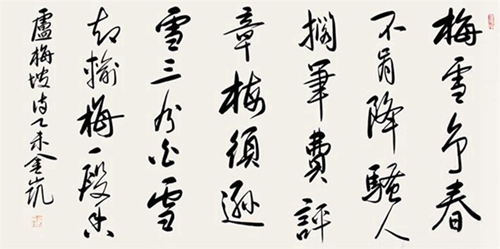 梅雪争春
不肯降騷人
擱筆費評
章梅須遜
雪三分白雪
却輸梅一段香
盧梅坡诗乙未金凱